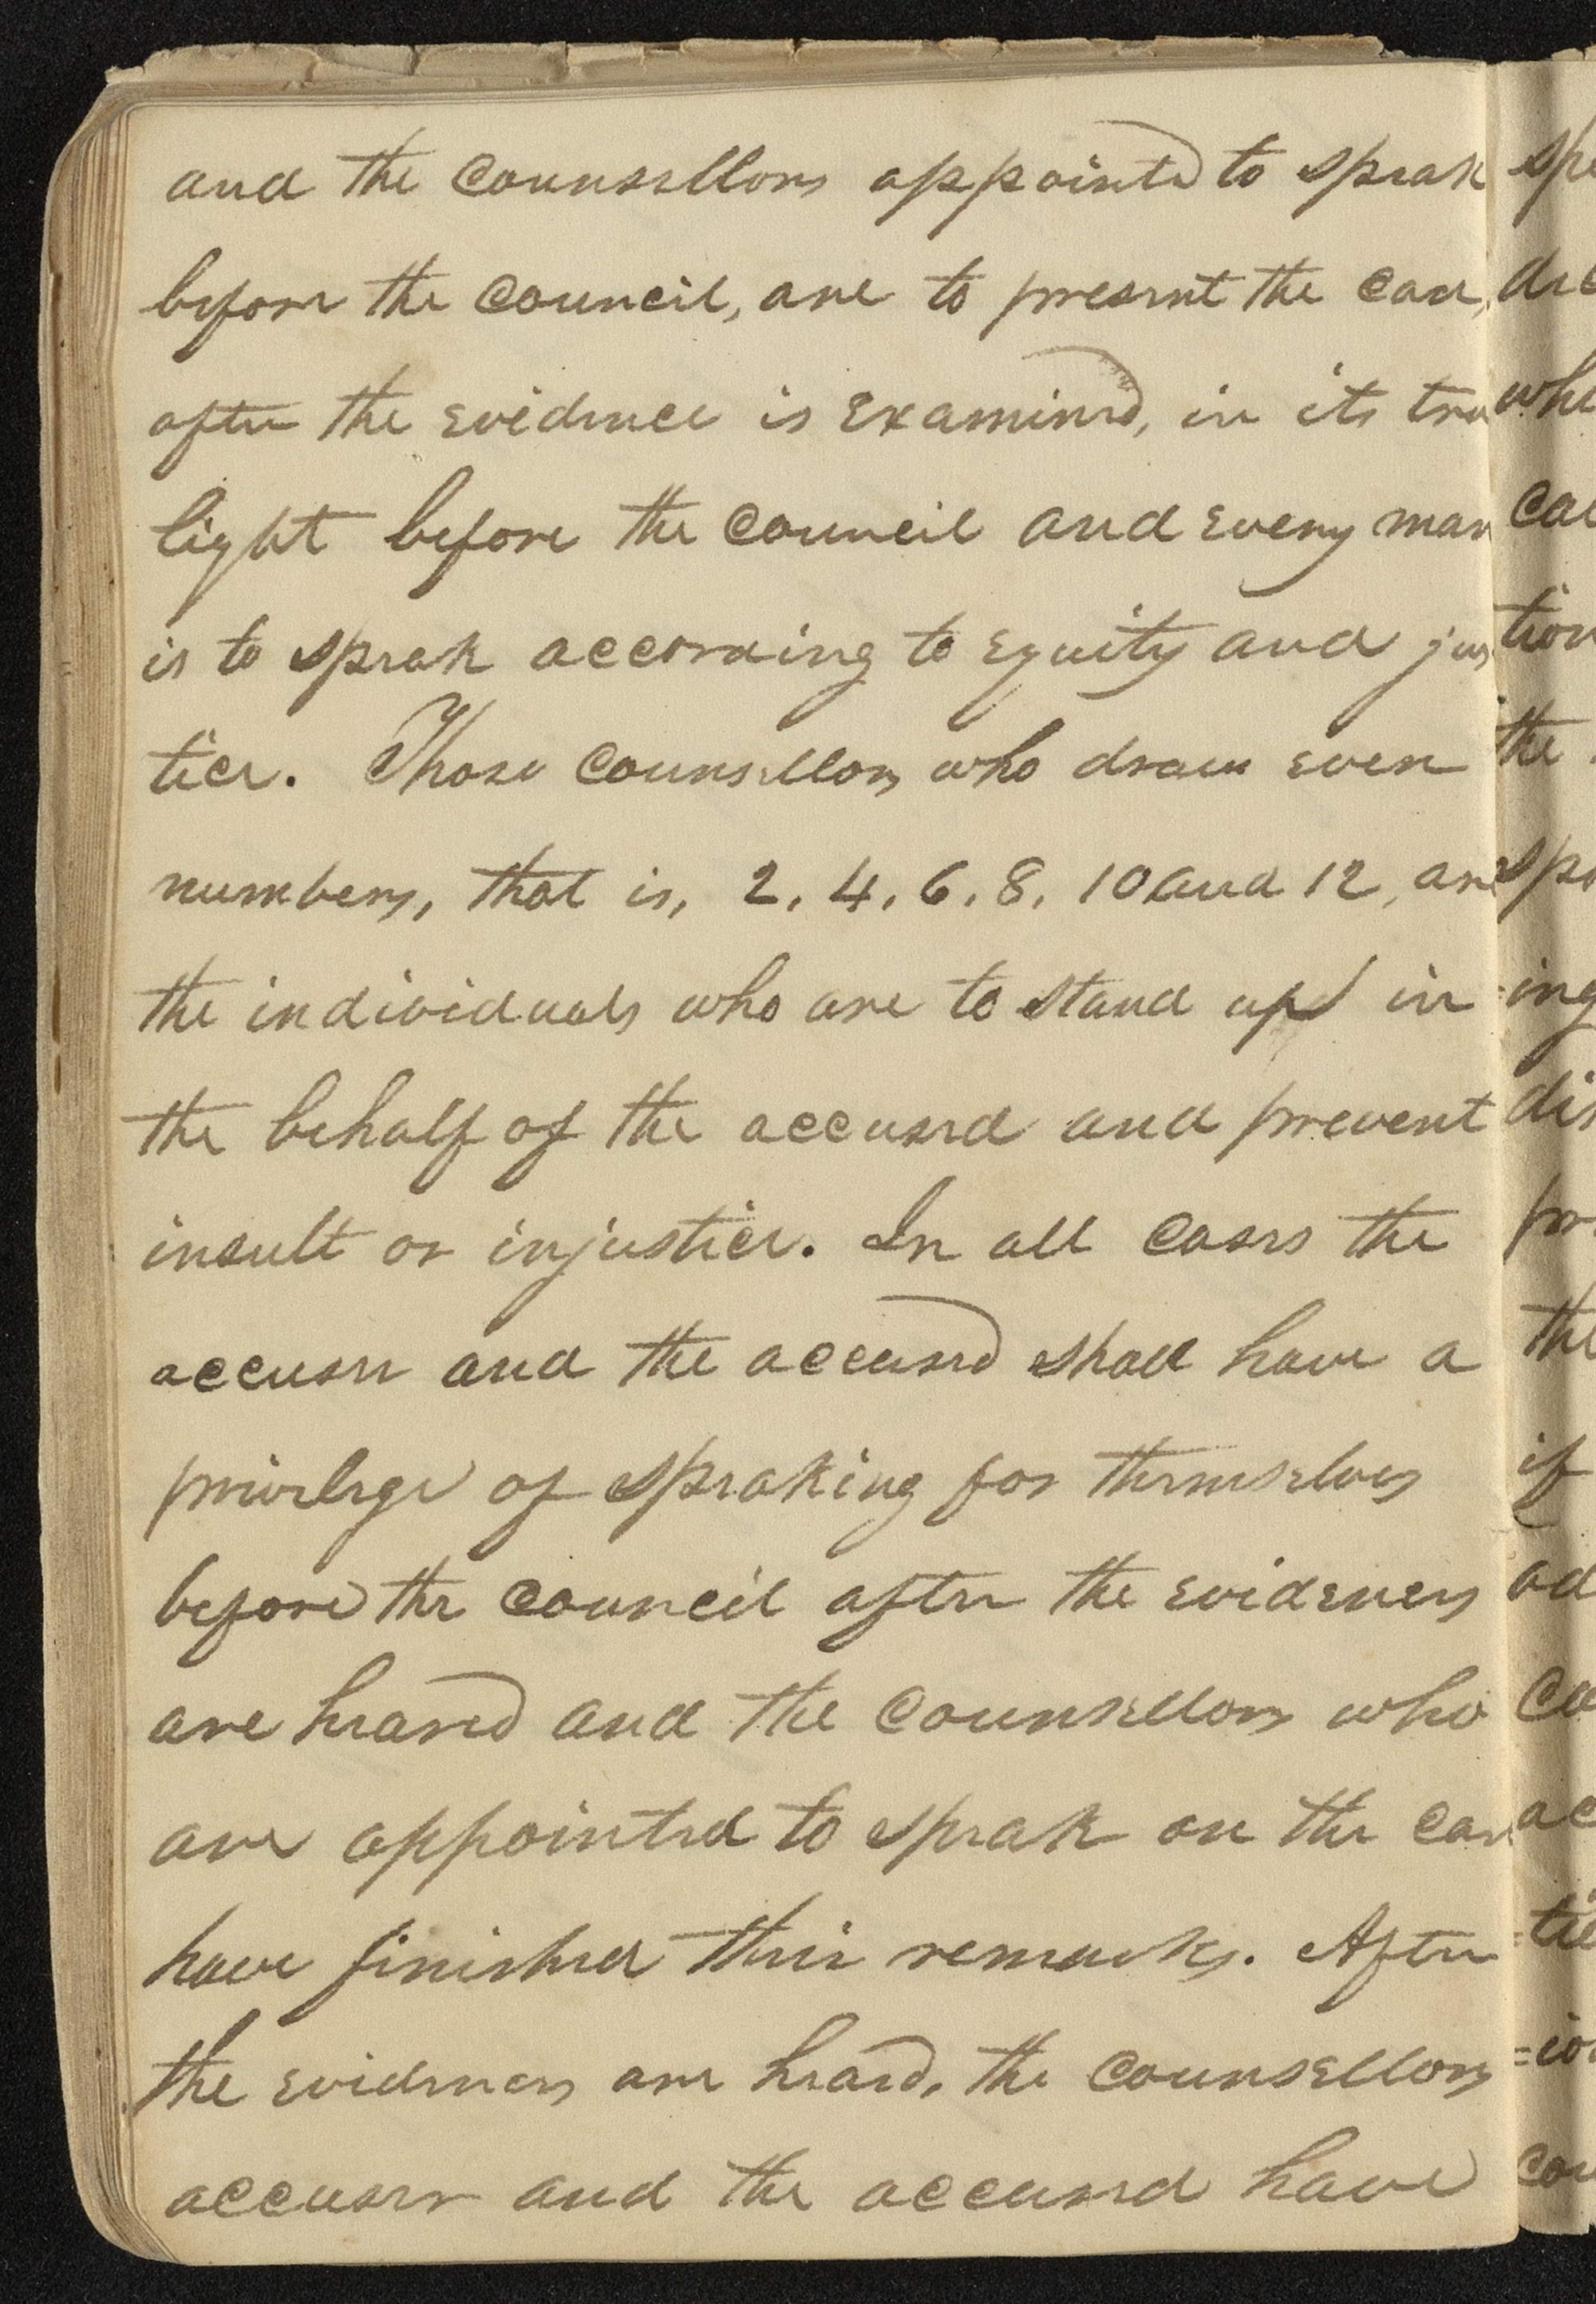 and the counsellors appointed to speak
before the council, are to present the case,
after the evidence is examined, in its true
light before the council and every man
is to speak according to equity and jus
tice. Those counsellors who draw even
numbers, that is, 2, 4, 6, 8, 10 and 12, are
the individuals who are to stand up in
the behalf of the accused and prevent
insult or injustice. In all cases the
accuser and the accused shall have a
privelege of speaking for themselves
before the council after the evidences
are heard and the counsellors who
are appointed to speak on the case
have finished their remarks. After
the evidences are heard, the counsellors
accuser and the accused have